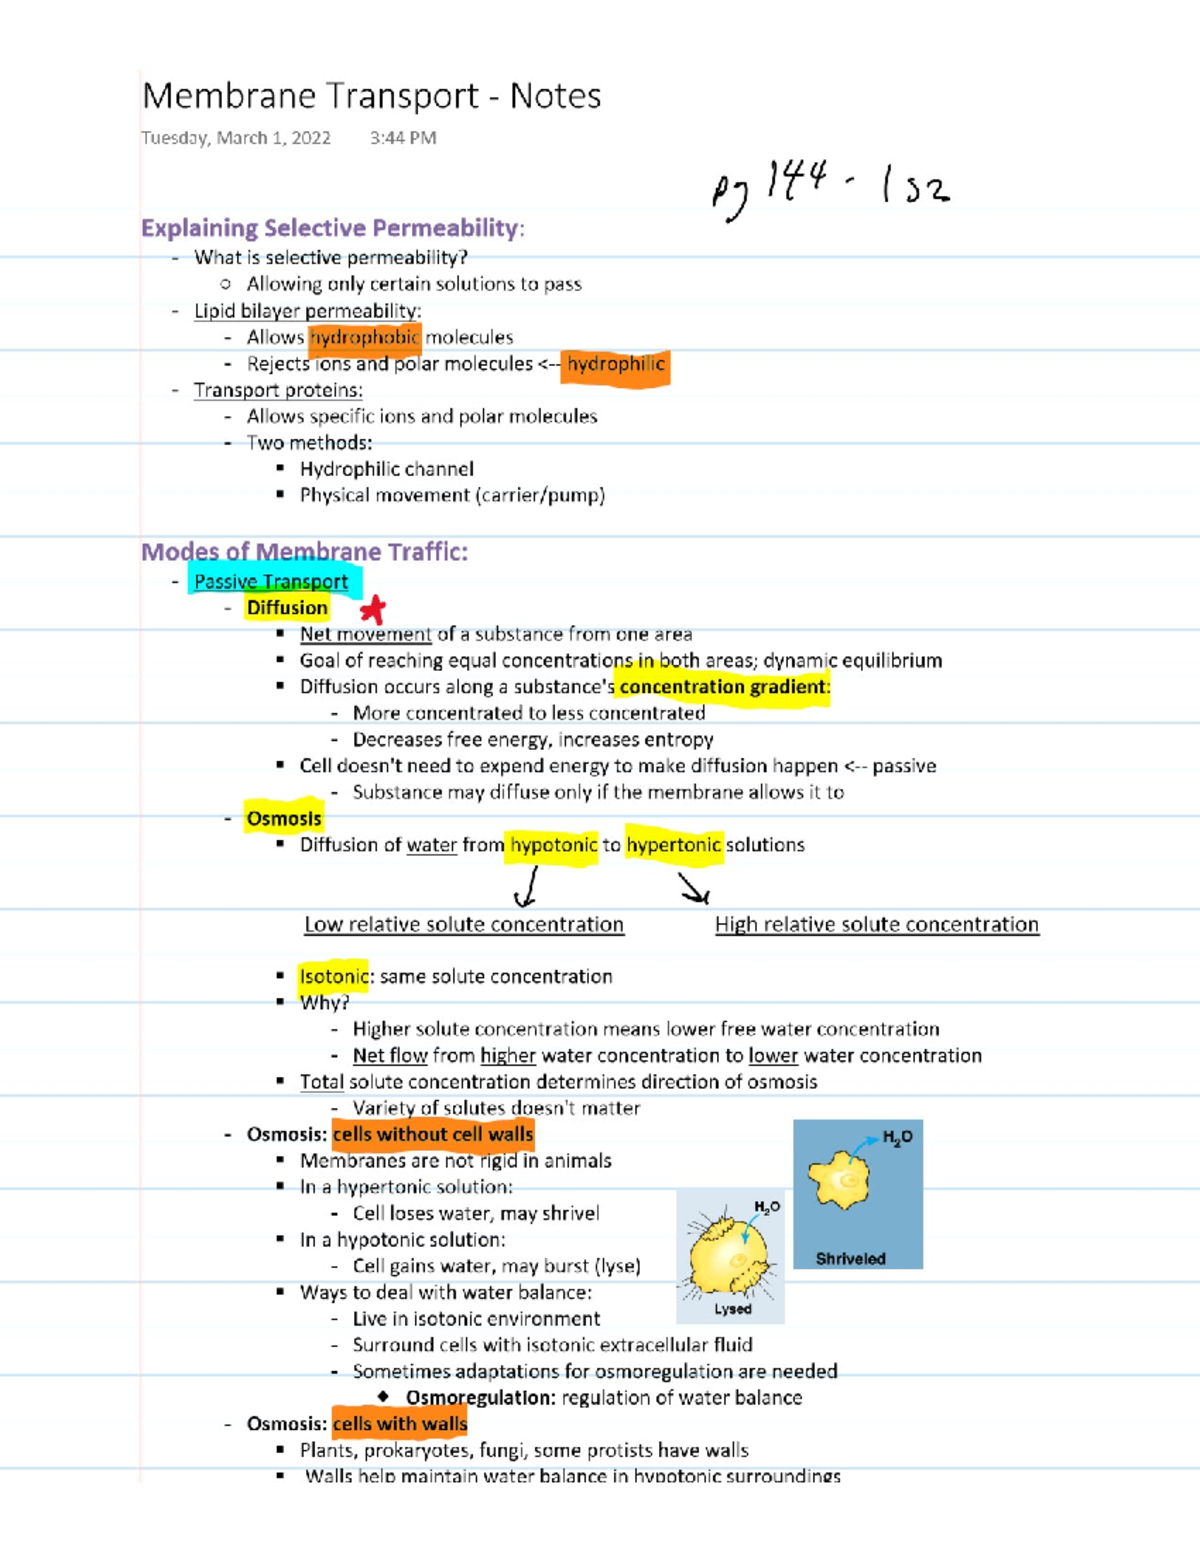 Membrane Transport - Notes
Tuesday, March 1, 2022 3:44 PM
pg 144 - 152
Explaining Selective Permeability:
- What is selective permeability?
○ Allowing only certain solutions to pass
- Lipid bilayer permeability:
- Allows hydrophobic molecules
- Rejects ions and polar molecules <-- hydrophilic
- Transport proteins:
- Allows specific ions and polar molecules
- Two methods:
▪ Hydrophilic channel
▪ Physical movement (carrier/pump)
Modes of Membrane Traffic:
- Passive Transport
- Diffusion
▪ Net movement of a substance from one area
▪ Goal of reaching equal concentrations in both areas; dynamic equilibrium
▪ Diffusion occurs along a substance's concentration gradient:
- More concentrated to less concentrated
- Decreases free energy, increases entropy
▪ Cell doesn't need to expend energy to make diffusion happen <-- passive
- Substance may diffuse only if the membrane allows it to
- Osmosis
▪ Diffusion of water from hypotonic to hypertonic solutions
Low relative solute concentration High relative solute concentration
▪ Isotonic: same solute concentration
▪ Why?
- Higher solute concentration means lower free water concentration
- Net flow from higher water concentration to lower water concentration
▪ Total solute concentration determines direction of osmosis
- Variety of solutes doesn't matter
- Osmosis: cells without cell walls
▪ Membranes are not rigid in animals
▪ In a hypertonic solution:
- Cell loses water, may shrivel
▪ In a hypotonic solution:
- Cell gains water, may burst (lyse)
▪ Ways to deal with water balance:
- Live in isotonic environment
- Surround cells with isotonic extracellular fluid
- Sometimes adaptations for osmoregulation are needed
◆ Osmoregulation: regulation of water balance
- Osmosis: cells with walls
▪ Plants, prokaryotes, fungi, some protists have walls
▪ Walls help maintain water balance in hypotonic surroundings
H₂O
Shriveled
H₂O
Lysed